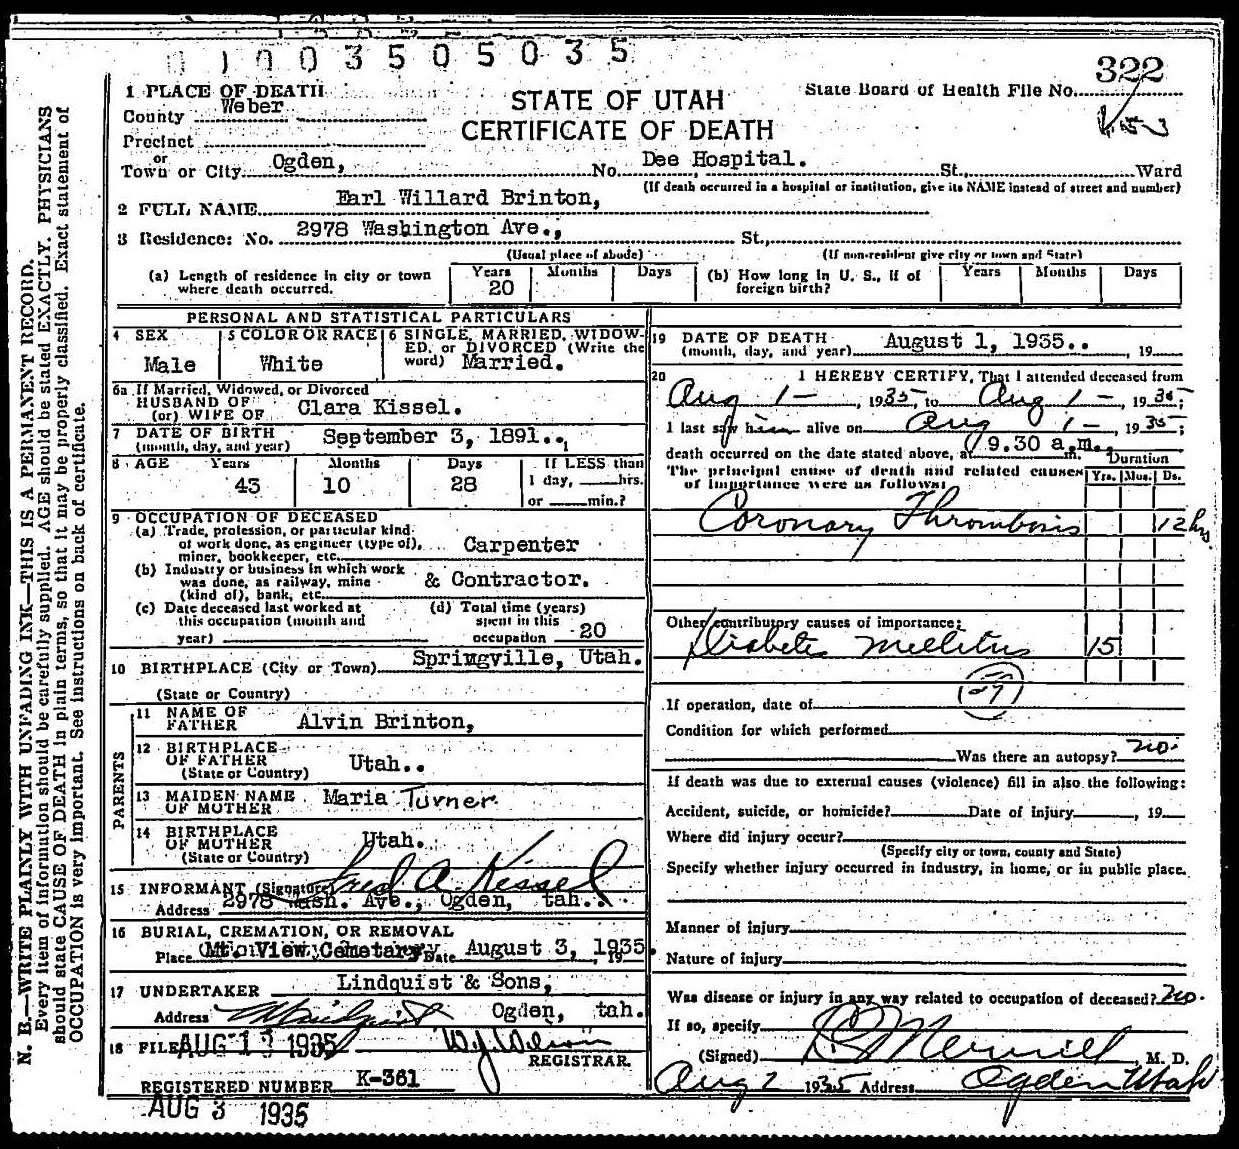 0 1 0 0 3 5 0 5 0 3 5
322
1 PLACE OF DEATH
County Weber
STATE OF UTAH
State Board of Health File No.
CERTIFICATE OF DEATH
Precinct
or
Town or City Ogden, No. Dee Hospital. St., Ward
(If death occurred in a hospital or institution, give its NAME instead of street and number)
2 FULL NAME Earl Willard Brinton,
3 Residence: No. 2978 Washington Ave., St.,
(Usual place of abode) (If non-resident give city or town and State)
(a) Length of residence in city or town where death occurred. Years 20 Months Days (b) How long in U. S., if of foreign birth? Years Months Days
PERSONAL AND STATISTICAL PARTICULARS
4 SEX Male
5 COLOR OR RACE White
6 SINGLE, MARRIED, WIDOW-
ED, or DIVORCED (Write the
word) Married.
6a If Married, Widowed, or Divorced
HUSBAND OF
(or) WIFE OF Clara Kissel.
7 DATE OF BIRTH
(month, day, and year) September 3, 1891..
8 AGE Years 43 Months 10 Days 28 If LESS than
1 day, hrs.
or min.?
9 OCCUPATION OF DECEASED
(a) Trade, profession, or particular kind
of work done, as engineer (type of),
miner, bookkeeper, etc. Carpenter
(b) Industry or business in which work
was done, as railway, mine
(kind of), bank, etc. & Contractor.
(c) Date deceased last worked at
this occupation (month and
year)
(d) Total time (years)
spent in this
occupation 20
10 BIRTHPLACE (City or Town) Springville, Utah.
(State or Country)
PARENTS
11 NAME OF
FATHER Alvin Brinton,
12 BIRTHPLACE
OF FATHER
(State or Country) Utah..
13 MAIDEN NAME
OF MOTHER Maria Turner.
14 BIRTHPLACE
OF MOTHER
(State or Country) Utah.
15 INFORMANT (Signature) Fred A Kissel
Address 2978 Wash. Ave., Ogden, tah..
16 BURIAL, CREMATION, OR REMOVAL
Place Mt. View Cemetary Date August 3, 1935. 19
17 UNDERTAKER Lindquist & Sons,
Address Ogden, tah.
18 FILED AUG 13 1935 W. J. Wilson
REGISTRAR.
REGISTERED NUMBER K-361
AUG 3 1935
19 DATE OF DEATH
(month, day, and year) August 1, 1935.. , 19
20 I HEREBY CERTIFY, That I attended deceased from
Aug 1 - , 1935 to Aug 1 - , 1935;
I last saw him alive on Aug 1 - , 1935;
death occurred on the date stated above, at 9.30 a.m. m.
The principal cause of death and related causes
of importance were as follows:
Duration
Yrs. Mos. Ds.
Coronary Thrombosis 12 hrs.
Other contributory causes of importance:
Diabetes Mellitus 15
If operation, date of
Condition for which performed
Was there an autopsy? no.
If death was due to external causes (violence) fill in also the following:
Accident, suicide, or homicide? Date of injury , 19
Where did injury occur?
(Specify city or town, county and State)
Specify whether injury occurred in industry, in home, or in public place.
Manner of injury
Nature of injury
Was disease or injury in any way related to occupation of deceased? no.
If so, specify
(Signed) Merrill , M. D.
Aug 2 1935 Address Ogden Utah
N. B.—WRITE PLAINLY WITH UNFADING INK—THIS IS A PERMANENT RECORD.
Every item of information should be carefully supplied. AGE should be stated EXACTLY. PHYSICIANS
should state CAUSE OF DEATH in plain terms, so that it may be properly classified. Exact statement of
OCCUPATION is very important. See instructions on back of certificate.